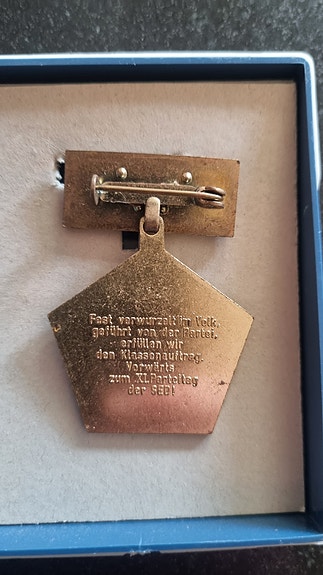 Fest verwurzelt im Volk,
geführt von der Partei,
erfüllen wir
den Klassenauftrag.
Vorwärts
zum XI.Parteitag
der SED!